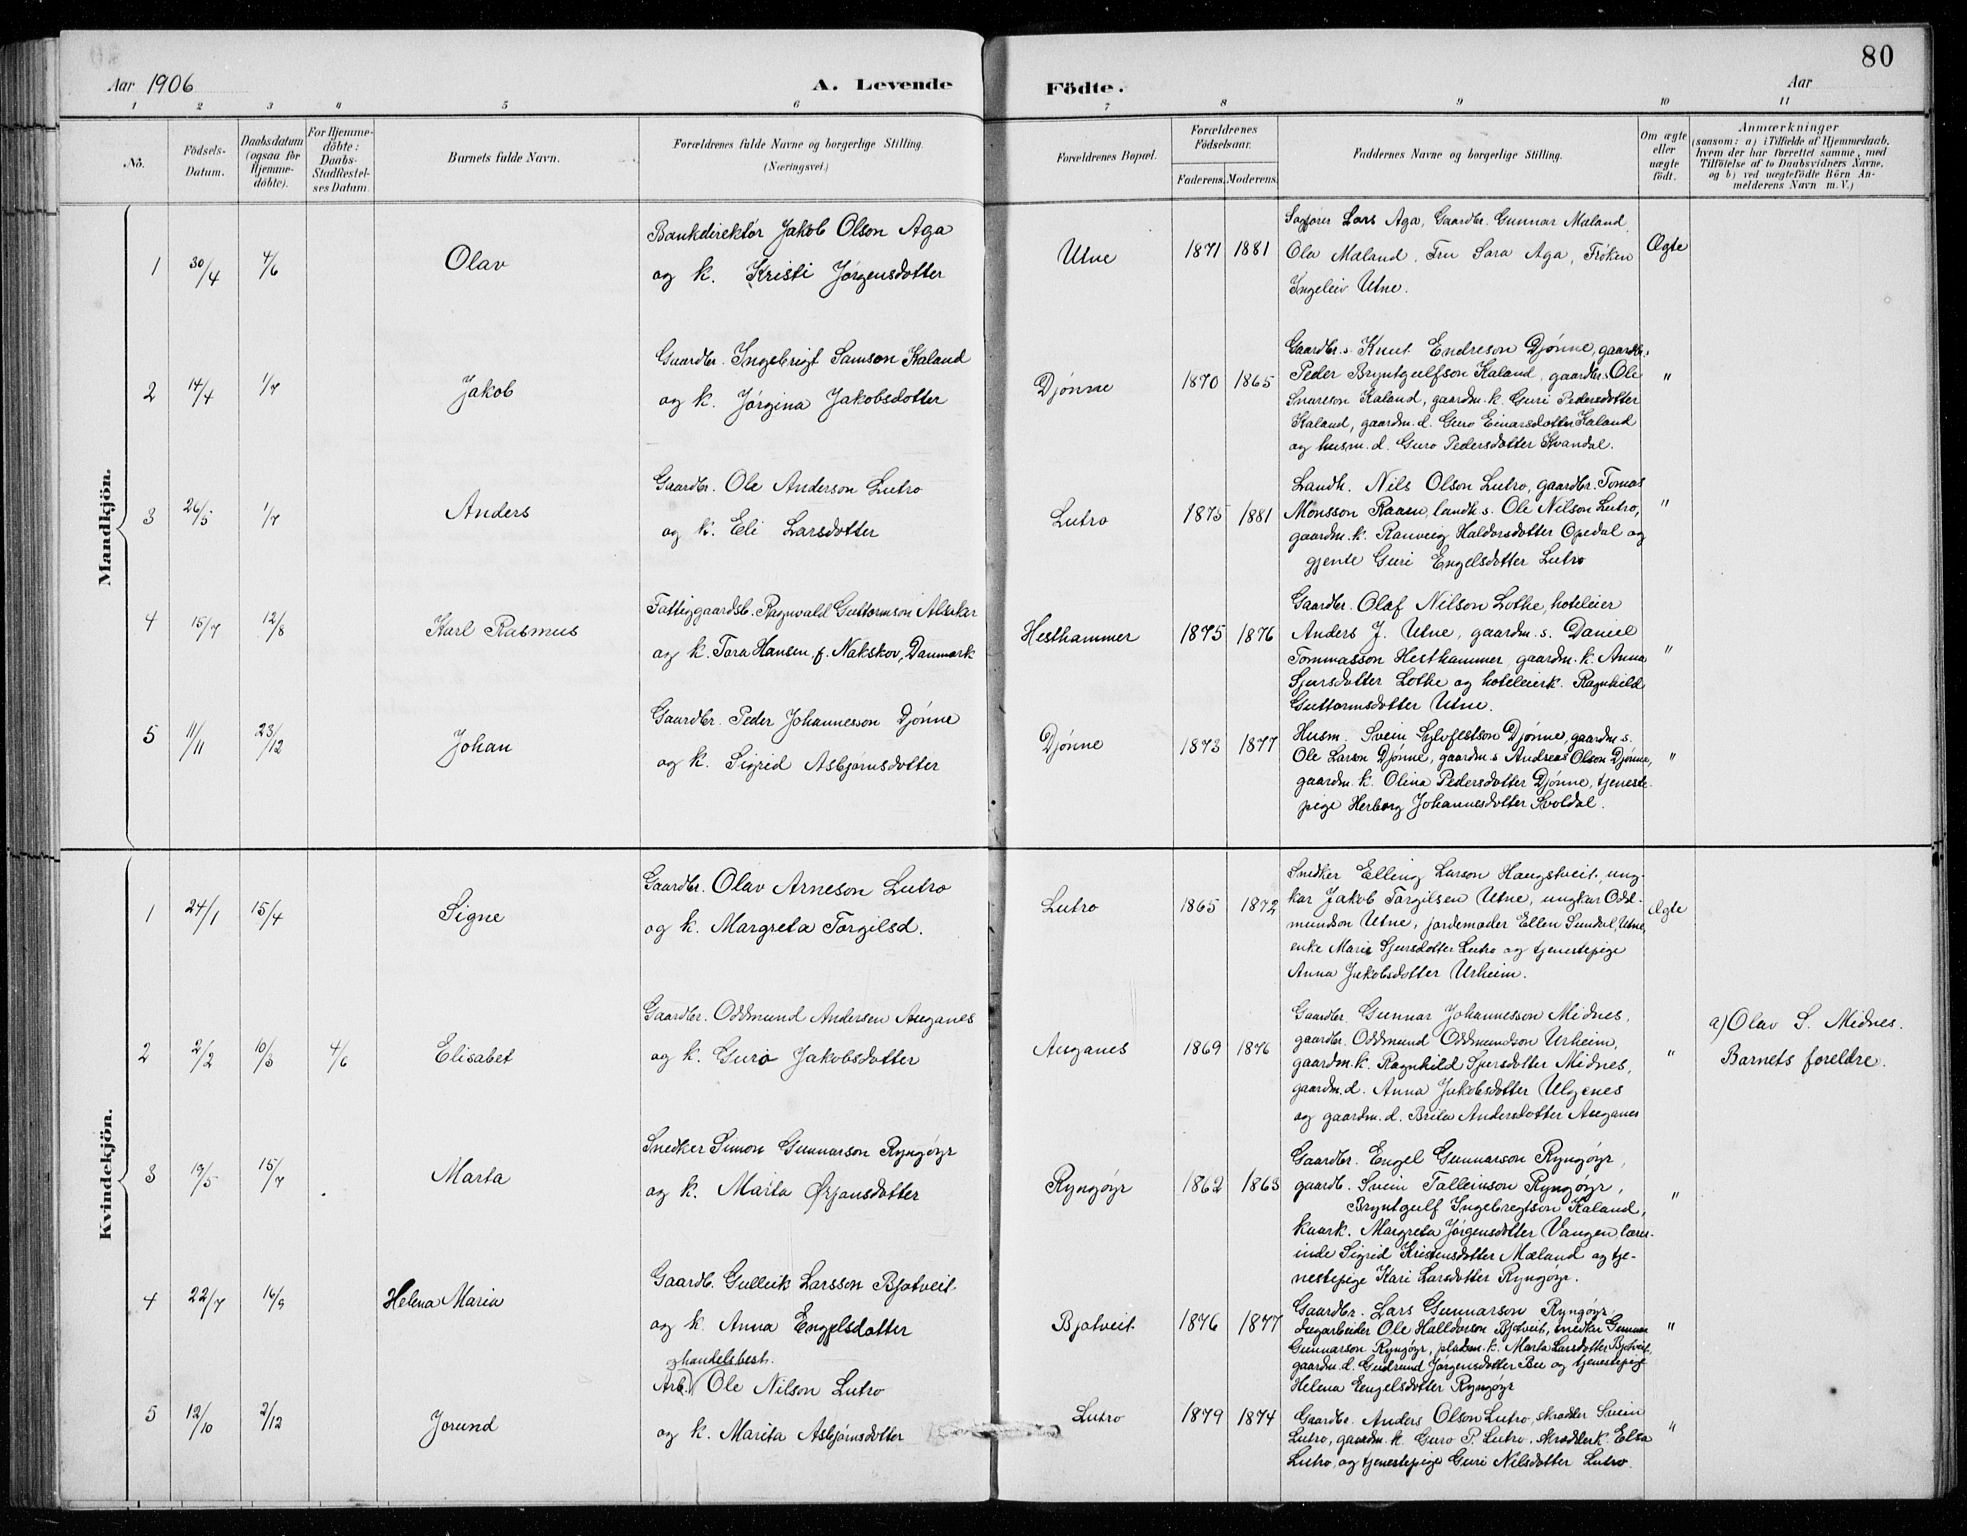 80
Aar 1906
A. Levende
Födte.
Aar
1 2 3 4 5 6 7 8 9 10 11
No.
Födsels-
Datum.
Daabsdatum
(ogsaa for
Hjemme-
döbte).
For Hjemme-
döbte:
Daabs-
Stadfæstel-
ses Datum.
Barnets fulde Navn.
Forældrenes fulde Navne og borgerlige Stilling.
(Næringsvei.)
Forældrenes Bopæl.
Forældrenes
Födselsaar.
Faderens. Moderens.
Faddernes Navne og borgerlige Stilling.
Om ægte
eller
uægte
födt.
Anmærkninger
(saasom: a) i Tilfælde af Hjemmedaab,
hvem der har forrettet samme, med
Tilföielse af to Daabsvidners Navne,
og b) ved uægtefödte Börn An-
melderens Navn m. V.)
Mandkjön.
1 30/4 4/6 Olav
Bankdirektør Jakob Olson Aga
og k. Kristi Jørgensdotter
Utne 1871 1881
Sagfører Lars Aga, Gaardbr. Gunnar Mæland,
Ola Mæland, Fru Sara Aga, Frøken
Ingeleiv Utne.
Ægte
2 14/4 1/7 Jakob
Gaardbr. Ingebrigt Samson Kaland
og k. Jørgina Jakobsdotter
Djønne 1870 1865
Gaardbr.s. Knut Endreson Djønne, gaardbr.s
Peder Bryntgulfson Kaland, gaardbr.s Ole
Snareson Kaland, gaardm.k. Guri Pedersdotter
Kaland, gaardm.d. Guro Einarsdotter Kaland
og husm.d. Guro Pedersdotter Kvandal.
"
3 26/5 1/7 Anders
Gaardbr. Ole Anderson Lutro
og k. Eli Larsdotter
Lutro 1875 1881
Landh. Nils Olson Lutro, gaardbr. Tomas
Monsson Raaen, landh.s. Ole Nilson Lutro,
gaardm.k. Ranveig Haldorsdotter Opedal og
gjente Guri Engelsdotter Lutro
"
4 15/7 12/8 Karl Rasmus
Fattiggaardsb. Ragnvald Guttormson Alsaker
og k. Tora Hansen, f. Nakskov, Danmark
Hesthammer 1875 1876
Gaardbr. Olaf Nilson Lothe, hoteleier
Anders J. Utne, gaardm.s. Daniel
Tommasson Hesthammer, gaardm.k. Anna
Sjursdotter Lothe og hoteleierk. Ragnhild
Guttormsdotter Utne.
"
5 11/11 23/12 Johan
Gaardbr. Peder Johannesson Djønne
og k. Sigrid Asbjørnsdotter
Djønne 1873 1877
Husm. Svein Sylfestson Djønne, gaardm.s.
Ole Larson Djønne, gaardm.s Andreas Olson Djønne,
gaardm.k. Olina Pedersdotter Djønne, tjeneste-
pige Herborg Johannesdotter Kvoldal.
"
Kvindekjön.
1 24/1 15/4 Signe
Gaardbr. Olav Arneson Lutro
og k. Margreta Torgilsd.
Lutro 1865 1872
Snedker Elling Larson Haugstveit, ung-
kar Jakob Torgilsen Utne, ungkar Odd-
mundson Utne, jordemoder Ellen Sundal, Utne
enke Mari Sjursdotter Lutro og tjenestepige
Anna Jakobsdotter Urheim.
Ægte
2 2/2 10/3 4/6 Elisabet
Gaardbr. Oddmund Andersen Auganes
og k. Guro Jakobsdotter
Auganes 1869 1876
Gaardbr. Gunnar Johannesson Midnes,
gaardbr. Oddmund Oddmundson Urheim,
gaardm.k. Ragnhild Sjursdotter Midnes,
gaardm.d. Anna Jakobsdotter Ulgenes
og gaardm.d. Brita Andersdotter Auganes
"
a) Olav S. Midnes.
Barnets foreldre.
3 19/5 15/7 Marta
Snedker Simon Gunnarson Ryngøyr
og k. Marita Ørjansdotter
Ryngøyr 1862 1863
Gaardbr. Engel Gunnarson Ryngøyr,
gaardb. Svein Talleivson Ryngøyr,
Bryntgulf Ingebregtson Kaland,
kaark. Margreta Jørgensdotter Vangen lærer-
inde Sigrid Kristensdotter Mæland og tje-
nestepige Kari Larsdotter Ryngøyr.
"
4 22/7 16/9 Helena Maria
Gaardb. Gulleik Larsson Bjotveit
og k. Anna Engelsdotter
Bjotveit 1876 1877
Gaardbr. Lars Gunnarson Ryngøyr,
Ole Halldorson Bjotveit, snedker Gunnar
Gunnarson Ryngøyr, pladsm.k. Marta Larsdotter Bjotveit,
gaardm.d. Gudrund Jørgensdotter Bu og tjenestepige
Helena Engelsdotter Ryngøyr
"
5 12/10 2/12 Jorund
og handelsbest.
Arb. Ole Nilson Lutro
og k. Marita Asbjørnsdotter
Lutro 1879 1874
Gaardbr. Anders Olson Lutro, skrædder Svein
Lutro, gaardm.k. Guro P. Lutro, skrædderk. Elsa
Lutro, og tjenestepige Guri Nilsdotter Lutro.
"